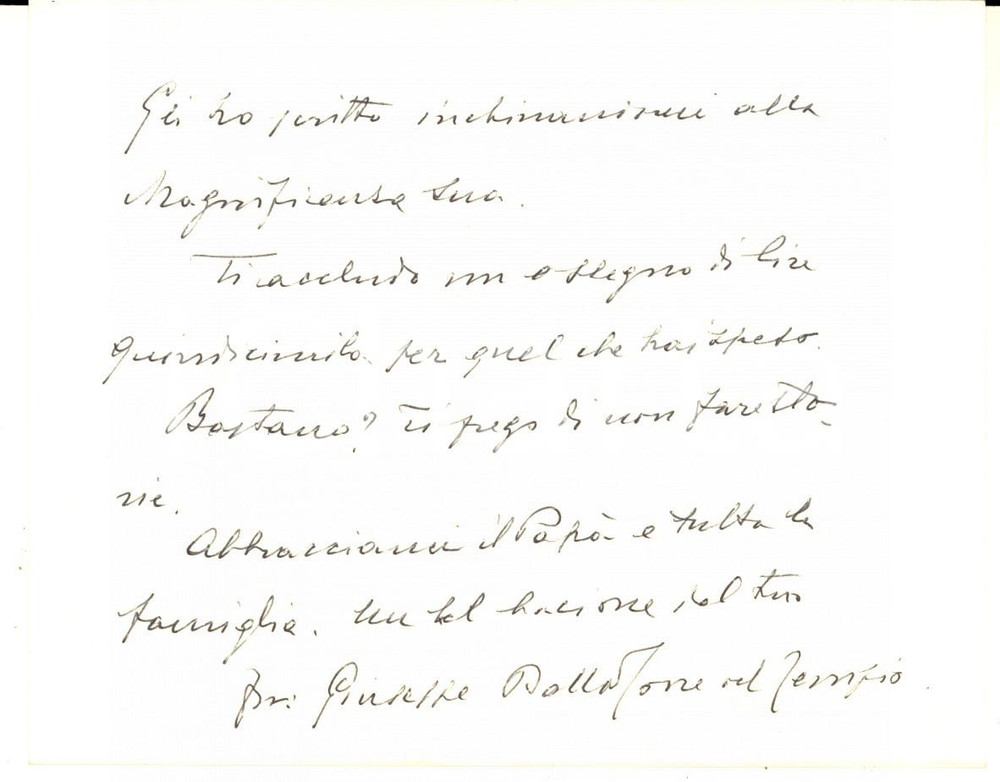 Gli ho scritto inchinandomi alla
Magnificenza Sua.
Ti accludo un assegno di lire
quindicimila per quel che hai speso.
Bastano? Ti prego di non fare sto-
rie.
Abbracciami il Papà e tutta la
famiglia. Un bel bacione dal tuo
Giuseppe Dalla Torre del Tempio